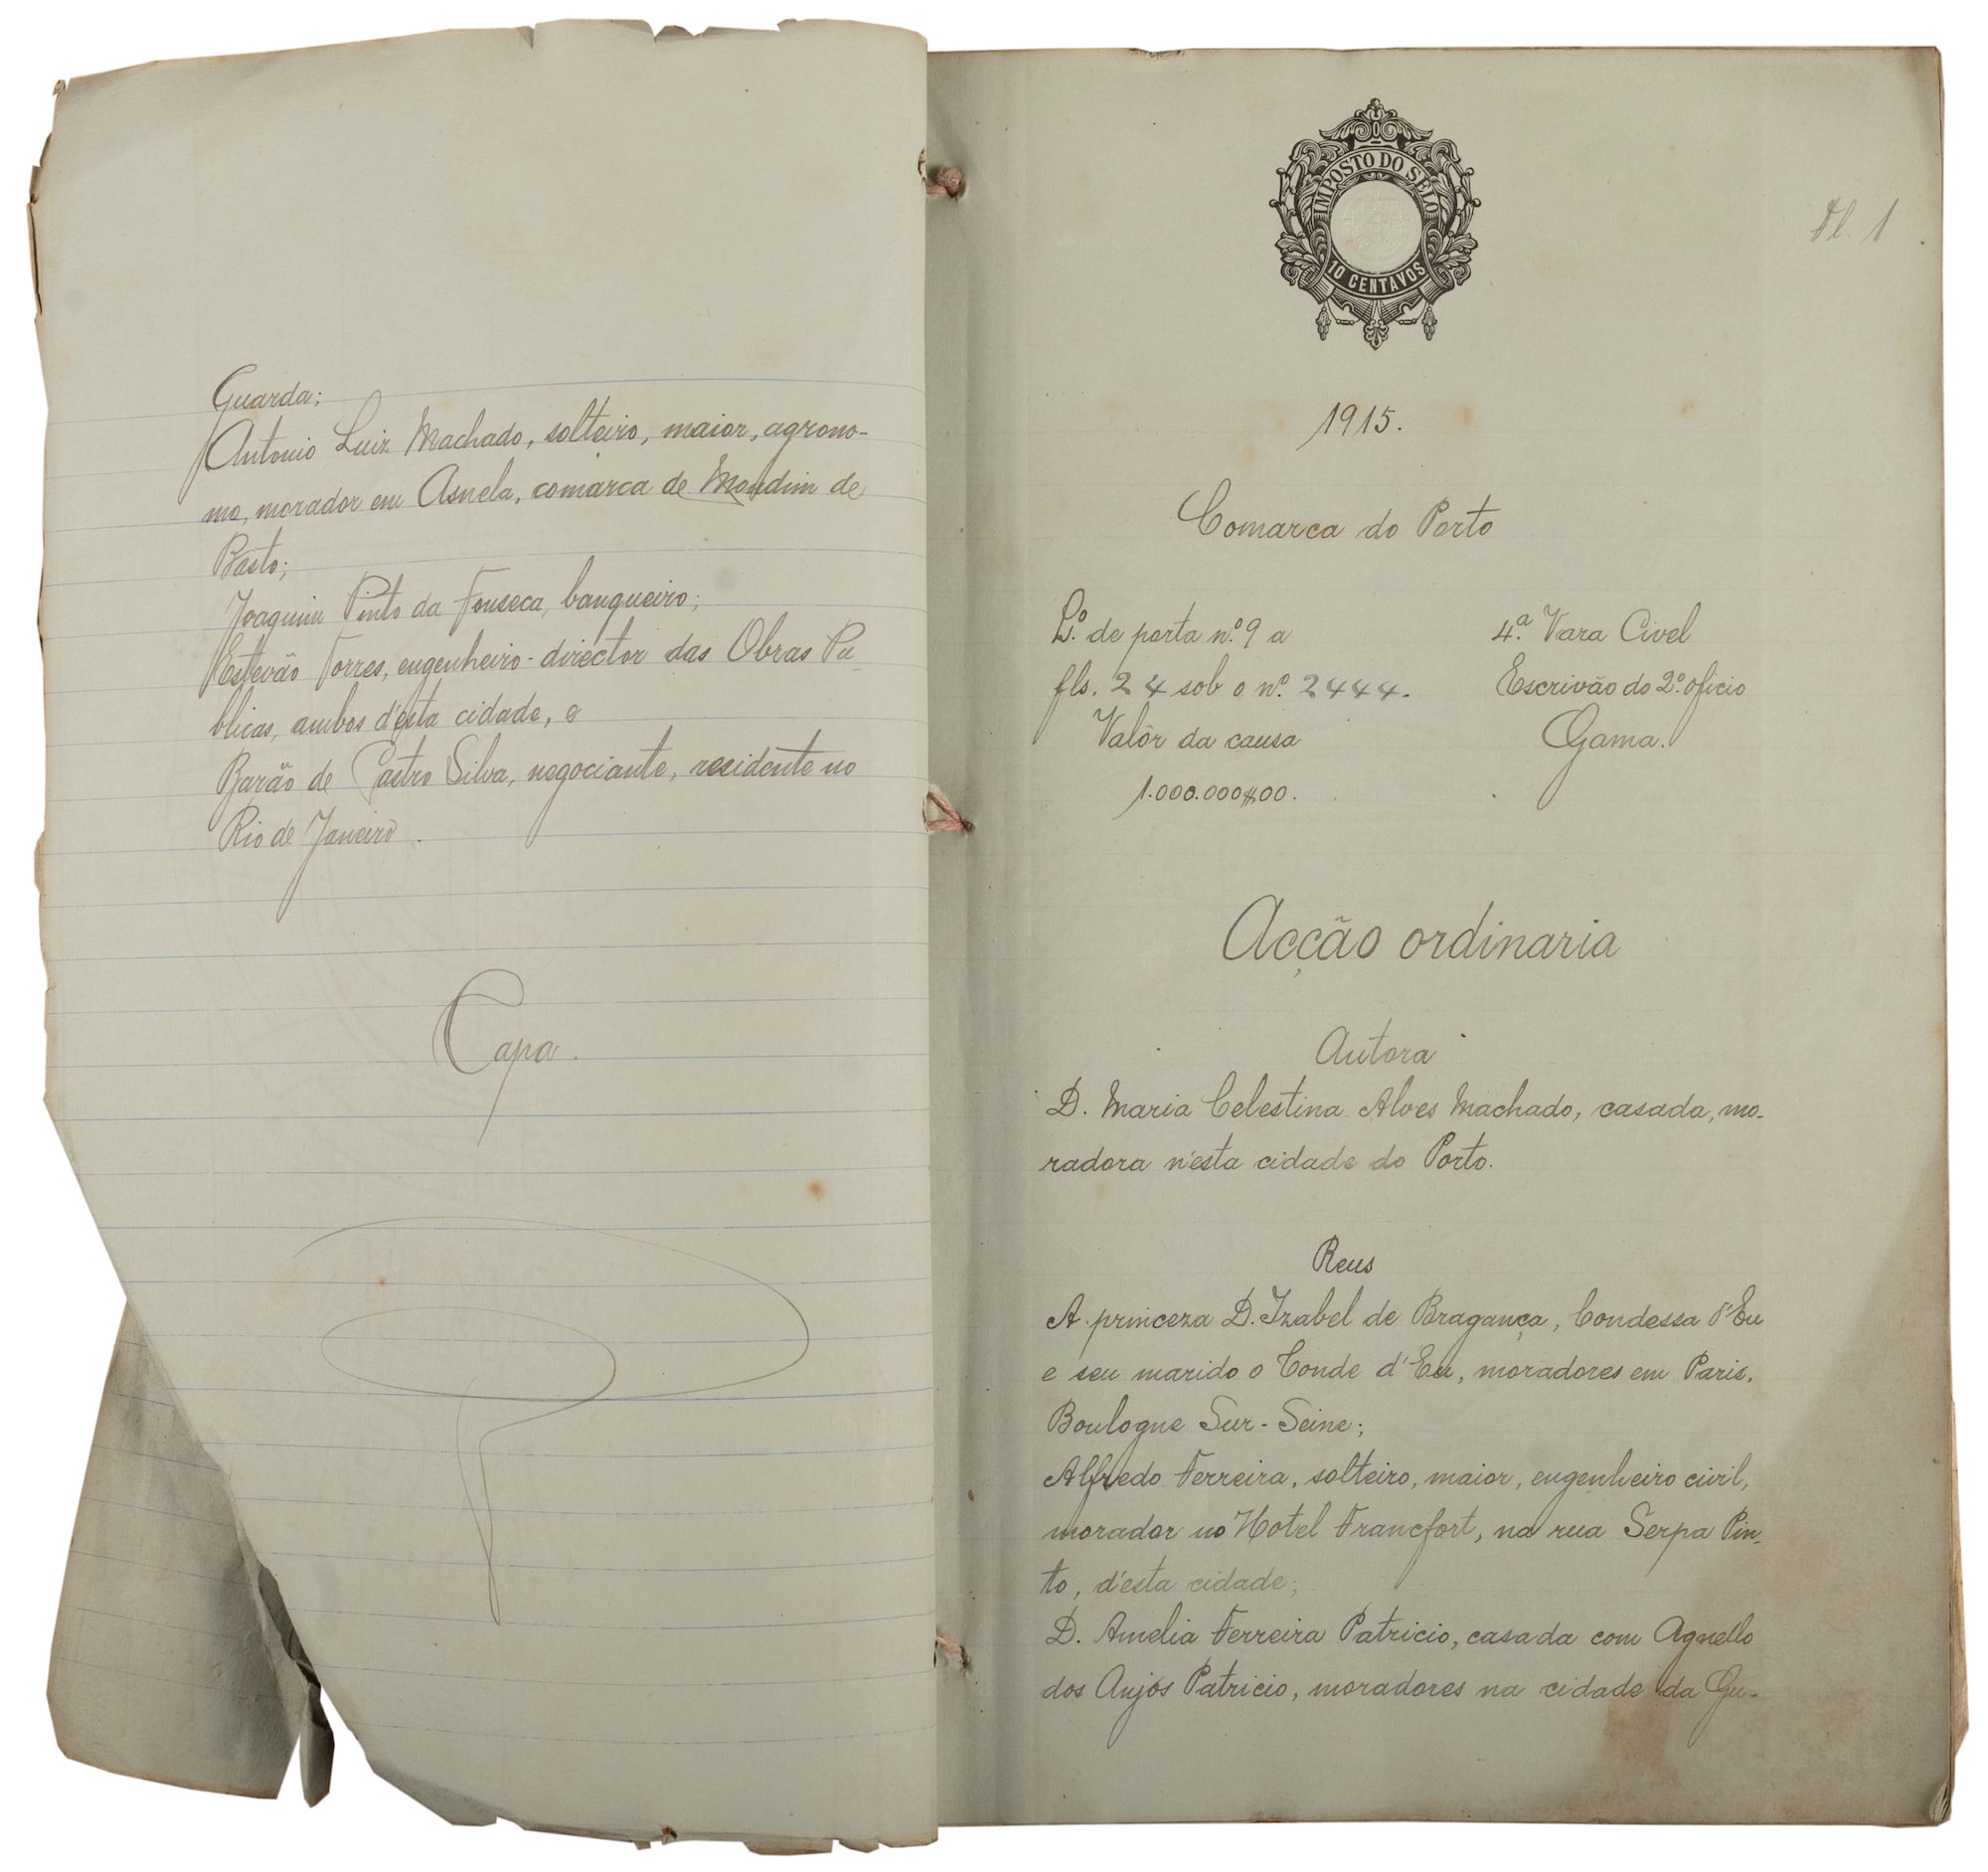 Guarda;
Antonio Luiz Machado, solteiro, maior, agrono-
mo, morador em Asnela, comarca de Mondim de
Basto;
Joaquim Pinto da Fonseca, banqueiro;
Estevão Torres, engenheiro-director das Obras Pu-
blicas, ambos d'esta cidade, e
Barão de Castro Silva, negociante, residente no
Rio de Janeiro.
Capa.
IMPOSTO DO SELO
10 CENTAVOS
Fl. 1
1915.
Comarca do Porto
L.º de porta n.º 9 a
fls. 24 sob o n.º 2444.
Valôr da causa
1.000.000$00.
4.ª Vara Civel
Escrivão do 2.º oficio
Gama.
Acção ordinaria
Autora
D. Maria Celestina Alves Machado, casada, mo-
radora n'esta cidade do Porto.
Reus
A princeza D. Izabel de Bragança, Condessa d'Eu
e seu marido o Conde d'Eu, moradores em Paris,
Boulogne Sur-Seine;
Alfredo Ferreira, solteiro, maior, engenheiro civil,
morador no Hotel Francfort, na rua Serpa Pin-
to, d'esta cidade;
D. Amelia Ferreira Patricio, casada com Agnello
dos Anjos Patricio, moradores na cidade da Gu-